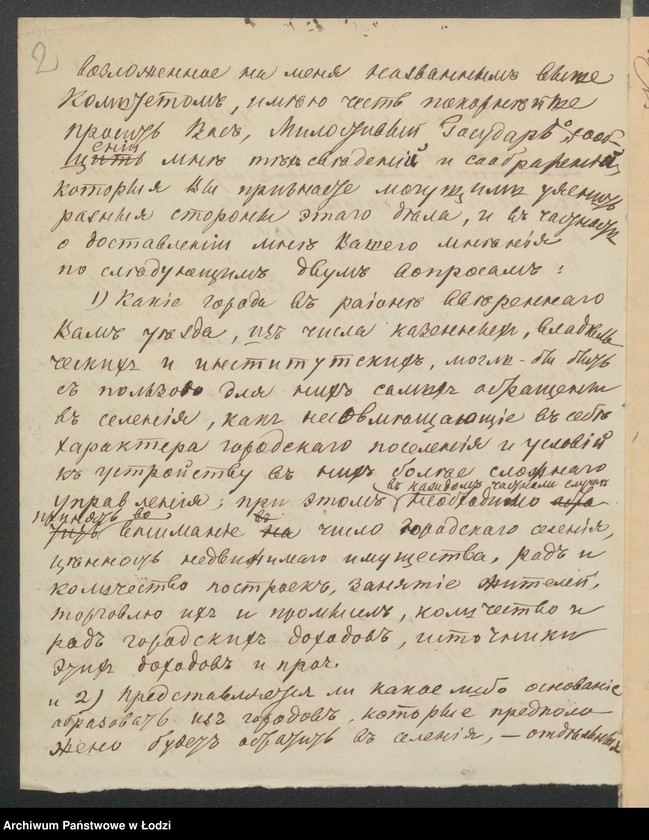 2
возложенное на меня названнымъ выше
Комитетомъ, имѣю честь покорнѣйше
просить Васъ, Милостивый Государь, о сооб-
щеніи мнѣ тѣхъ свѣдѣній и соображеній,
которыя Вы признаете могущими уяснить
разныя стороны этаго дѣла, и въ частности
о доставленіи мнѣ Вашего мнѣнія
по слѣдующимъ двумъ вопросамъ:
1) Какіе города въ раіонѣ ввѣреннаго
Вамъ уѣзда, изъ числа казенныхъ, владѣль-
ческихъ и институтскихъ, могли-бы быть
съ пользою для нихъ самихъ обращены
въ селенія, какъ не вмѣщающіе въ себѣ
характера городскаго поселенія и условій
къ устройству въ нихъ болѣе сложнаго
въ каждомъ частномъ случаѣ
управленія; при этомъ необходимо
принять во
вниманіе число городскаго селенія,
цѣнность недвижимаго имущества, родъ и
количество построекъ, занятіе жителей,
торговлю ихъ и промыслъ, количество и
родъ городскихъ доходовъ, источники
этихъ доходовъ и проч.
и 2) представляется ли какое либо основаніе
образовать изъ городовъ, которые предполо
жено будетъ обратить въ селенія, – отдѣльныя
Archiwum Państwowe w Łodzi